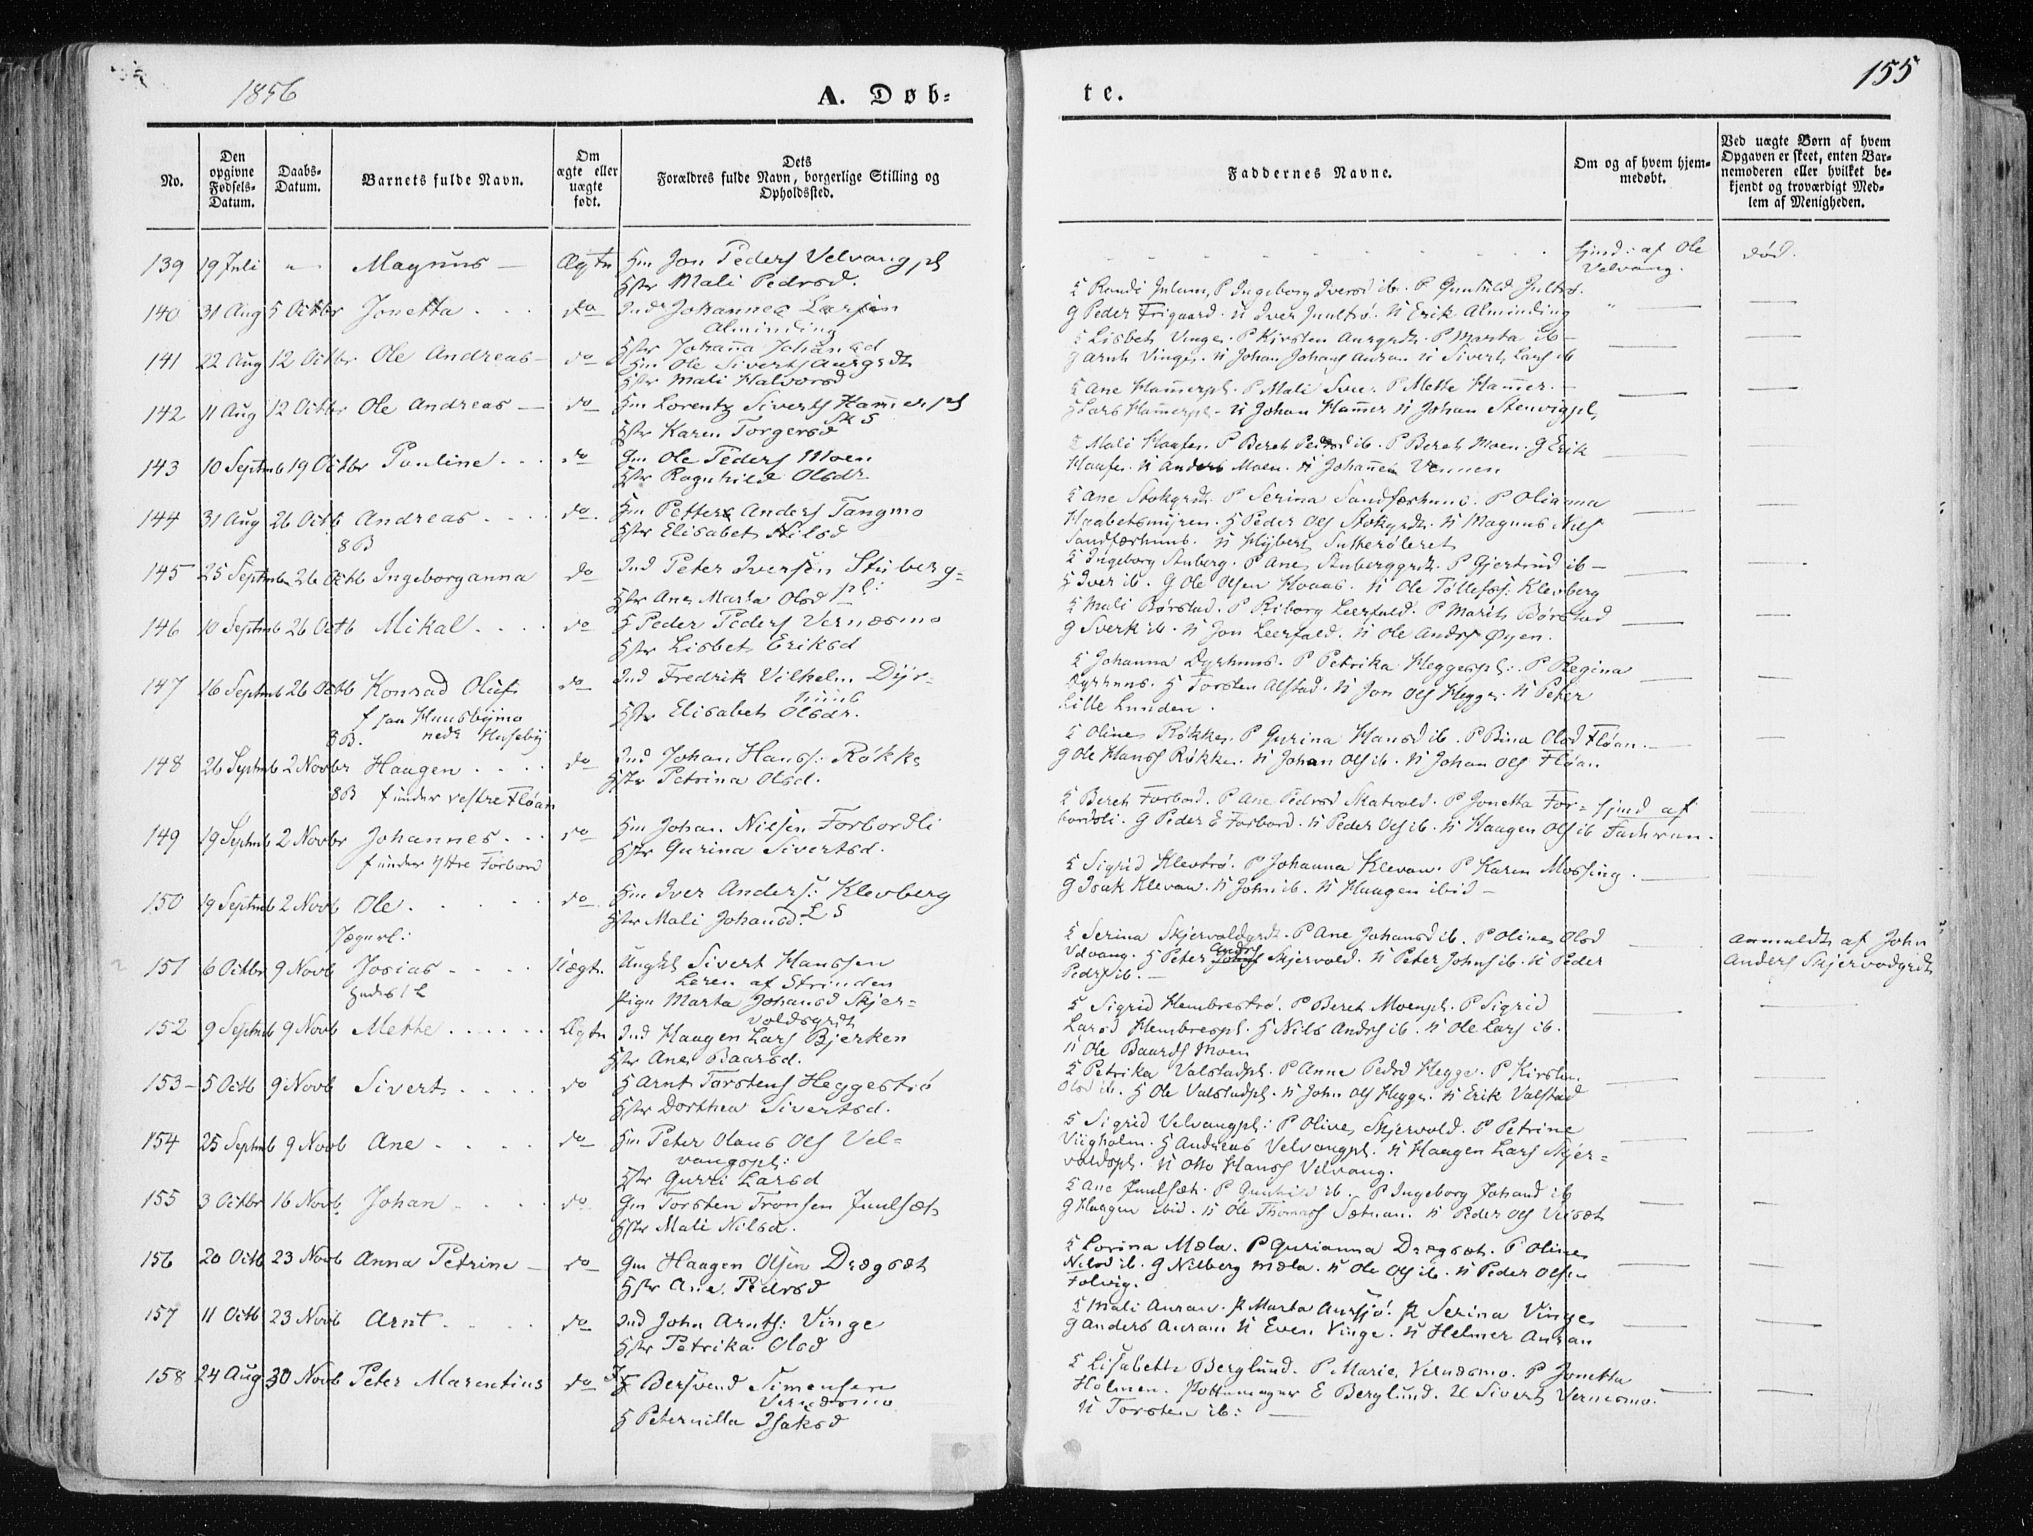 1856
A. Døb-
te.
155
No.
Den opgivne Fødsels-Datum.
Daabs-Datum.
Barnets fulde Navn.
Om ægte eller uægte født.
Dets Forældres fulde Navn, borgerlige Stilling og Opholdssted.
Faddernes Navne.
Om og af hvem hjem-medøbt.
Ved uægte Børn af hvem Opgaven er skeet, enten Bar-nemoderen eller hvilket be-kjendt og troværdigt Med-lem af Menigheden.
139 19 Juli Magnus Ægte Hm Jon Peders Velvangpl
Hstr Mali Pedrsd.
hjmd: af Ole
Velvang.
død.
140 31 Aug 5 Octbr Jonetta do Ind Johannes Larsen
Alminding
Hstr Johanna Johansd
G Peder Frigaard. U Iver Juultrø. U Erik Alminding
141 22 Aug 12 Octbr Ole Andreas do Hm Ole Siverts Aurgrdt
Hstr Mali Halvorsd
K Lisbet Vinge. P Kirsten Aurgrdt. P Marta ib
G Arnt Vinge. U Johan Johans Auran U Sivert Lars ib
142 11 Aug 12 Octbr Ole Andreas do Hm Lorentz Siverts Hammerpl
Hstr Karen Torgersd
K Ane Hammerpl. P Mali Sve. P Mette Hammer.
H Lars Hammerpl. U Johan Hammer U Johan Stenvigpl
143 10 Septmb 19 Octbr Pauline do Gm Ole Peders Moen
Hstr Ragnhild Olsdr
K Mali Haafe. P Beret Pedrsd ib. P Beret Moen. G Erik
Haafe. U Anders Moen. U Johannes Vennen
144 31 Aug 26 Octb Andreas do Hm Petter Anders Tangmo
Hstr Elisabet Nilsd
K Ane Stokgrdt. P Serina Sandfærhuus. P Olianna
Haabetsmyren. H Peder Ols Stokgrdt. U Magnus Nils
145 25 Septmb 26 Octb Ingeborganna do Ind Peter Iversen Stuberg-
pl:
Hstr Ane Marta Olsd
K Ingeborg Stuberg. P Ane Stuberggrdt. P Gjertrud ib
H Iver ib. G Ole Olsen Hvaas. U Ole Tollefs: Kleiberg
146 10 Septmb 26 Octb Mikal do H Peder Peders Vernæsmo
Hstr Lisbet Eriksd
K Mali Børstad. P Riborg Leerfald. P Marit Børstad
G Sverk ib. U Jon Leerfald. U Ole Anders Øyen.
147 16 Septmb 26 Octb Konrad Oluf do Ind Fredrik Vilhelm Dyr-
huus
Hstr Elisabet Olsdr.
K Johanna Dyrhuus. P Petrika Heggespl. P Regina
Dyrhuus. H Torsten Alstad. U Jon Ols Hegge. U Peter
Lille Lunden.
f paa Huusbymo
nedr Huseby
8B.
148 26 Septmb 2 Novbr Haagen do Ind Johan Hanss: Røkke
Hstr Petrina Olsd.
K Oline Røkke. P Gurina Hansd ib. P Bina Olsd Fløan.
G Ole Hanss Røkke. U Johan Ols ib. U Johan Ols Fløan
8B f under vestre Fløan
149 19 Septmb 2 Novbr Johannes do Hm Johan Nilsen Forbordli
Hstr Gurina Sivertsd.
K Beret Forbord. P Ane Pedrsd Skatvold. P Jonetta For-
bordli. G Peder E Forbord. U Peder Ols ib. U Haagen Ols ib
hjmd af
Faderen.
f under ytre Forbord
150 19 Septmb 2 Novb Ole do Hm Iver Anders: Klevberg
Hstr Mali Johansd.
K Sigrid Klevtrø. P Johanna Klevan. P Karen Mossing.
G Isak Klevan. U John ib. U Haagen ibid
151 6 Octbr 9 Novb Josias Uægte Ungkl Sivert Hanssen
Leren af Strinden
Pige Marta Johansd Skjer-
voldsgrdt
K Serina Skjervoldgrdt. P Ane Johansd ib. P Oline Olsd
Velvang. H Peter Anders Skjervold. U Peter Johns ib. U Peder
Peders ib.
Anmeldt af John
Anders Skjervoldgrdt
152 9 Septmb 9 Novb Mette Ægte Ind Haagen Lars Bjerken
Hstr Ane Baarsd.
K Sigrid Hembrestrø. P Beret Moenpl. P Sigrid
Larsd Hembrespl. H Nils Anders ib. U Ole Lars ib.
U Ole Baards Moen
153 5 Octb 9 Novb Sivert do H Arnt Torstens Heggestrø
Hstr Dorthea Sivertsd.
K Petrika Valstadpl. P Anne Pedrsd Hegge. P Kirsten
Olsd ib. H Ole Valstadpl. U John Ols Hegge. U Erik Valstad
154 25 Septmb 9 Novb Ane do Hm Peter Olaus Ols Vel-
vangspl:
Hstr Gurri Larsd
K Sigrid Velvangpl: P Olive Skjervold. P Petrine
Viigholm. H Andreas Velvangpl. U Haagen Lars Skjer-
voldspl. U Otto Hanss Velvang.
155 3 Octbr 16 Novb Johan do Gm Torsten Tronsen Juulsæt
Hstr Mali Nilsd.
K Ane Juulsæt. P Gunhild ib. P Ingeborg Johansd ib
G Haagen ibid. U Ole Thomass Sætnan. U Peder Ols
156 20 Octb 23 Novb Anna Petrine do Gm Haagen Olsen Drægsæt
Hstr Ane Pedrsd
K Lorina Mæla. P Gurianna Drægsæt. P Oline
Nilsd ib. G Nilberg Mæla. U Ole Ols ib. U Peder Olsen
Folvig.
157 11 Octb 23 Novb Arnt do Ind John Arnts: Vinge
Hstr Petrika Olsd
K Mali Auran. P Marta Aursjø. P Serina Vinge
G Anders Auran U Even Vinge. U Helmer Auran
158 24 Aug 30 Novb Peter Marentius do H Bersvend Simensen
Vernæsmo
H Peternilla Isaksd
K Lisabeth Berglund. P Marie Vernæsmo. P Jonetta
Holmen. Pottemager E Berglund. U Sivert Vernesmo.
U Torsten ib: